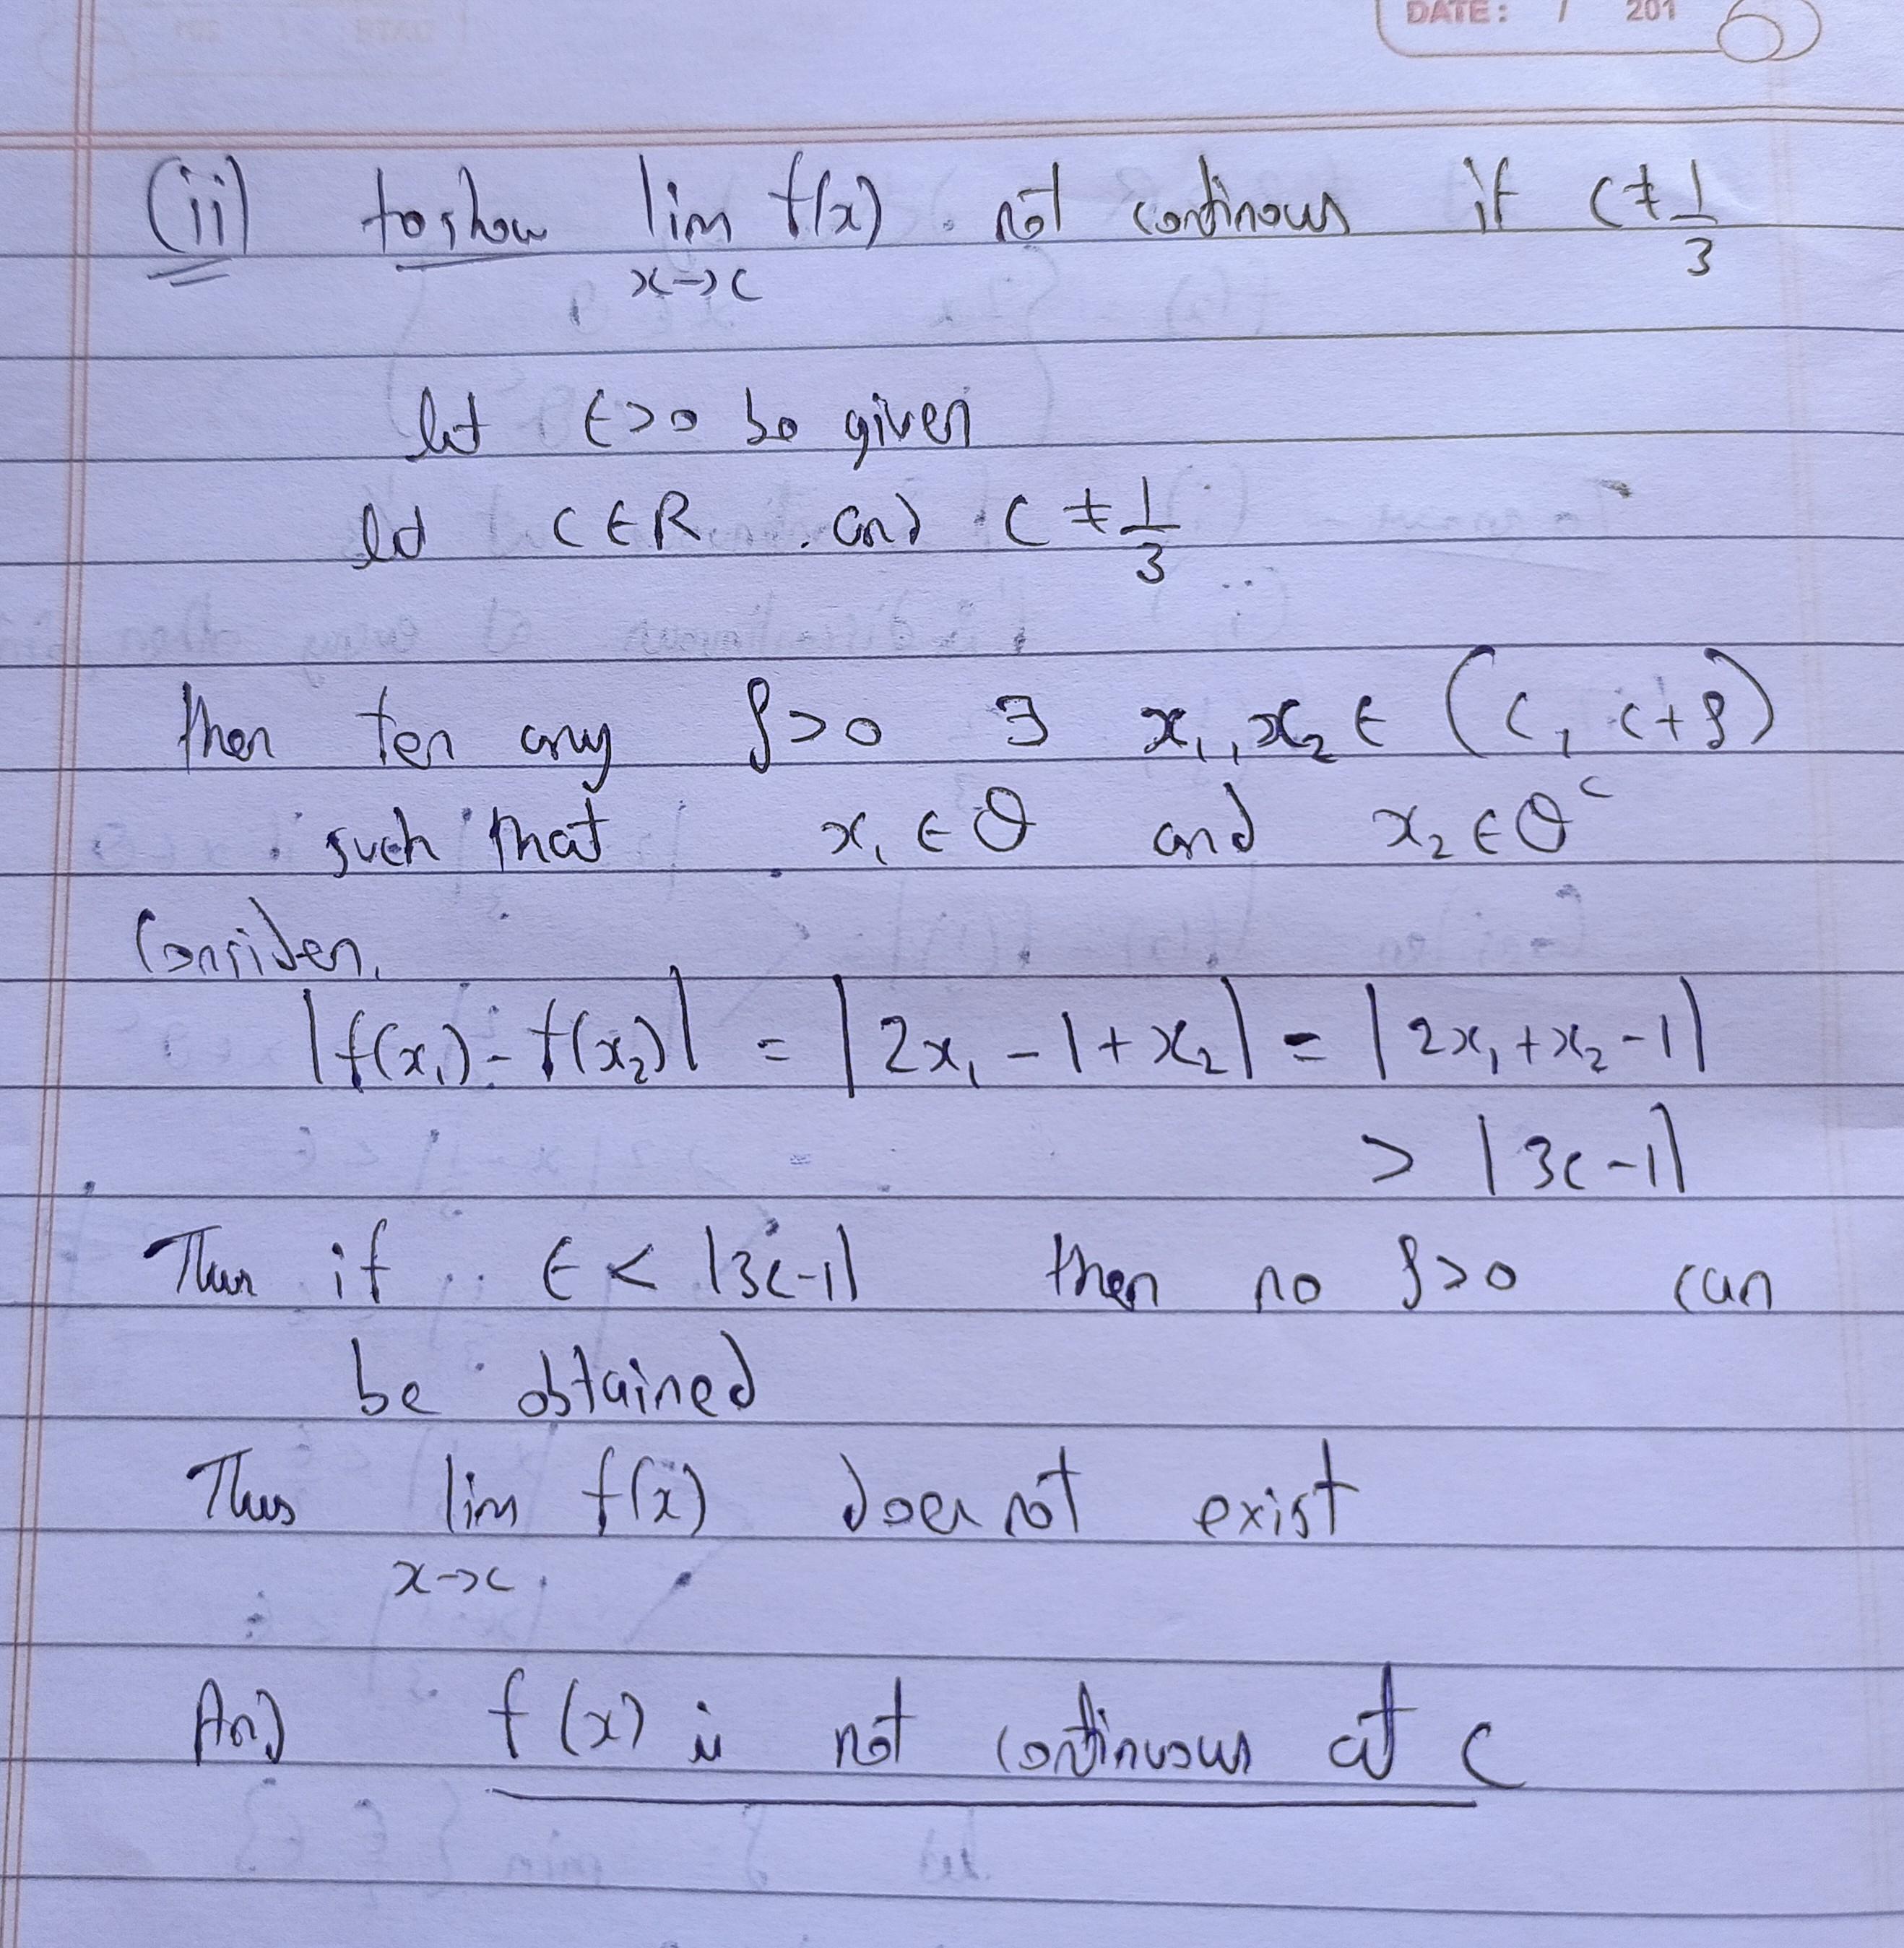 DATE: / 201
(ii) to show lim f(x) not continous if c ≠ 1/3
x→c
let ε>0 be given
let c∈R and c ≠ 1/3
then for any δ>0 ∃ x₁, x₂ ∈ (c, c+δ)
such that x₁ ∈ Q and x₂ ∈ Qᶜ
Consider,
|f(x₁) - f(x₂)| = |2x₁ - 1 + x₂| = |2x₁ + x₂ - 1|
> |3c-1|
Thus if ε < |3c-1| then no δ>0 can
be obtained
Thus lim f(x) does not exist
x→c
And f(x) is not continuous at c